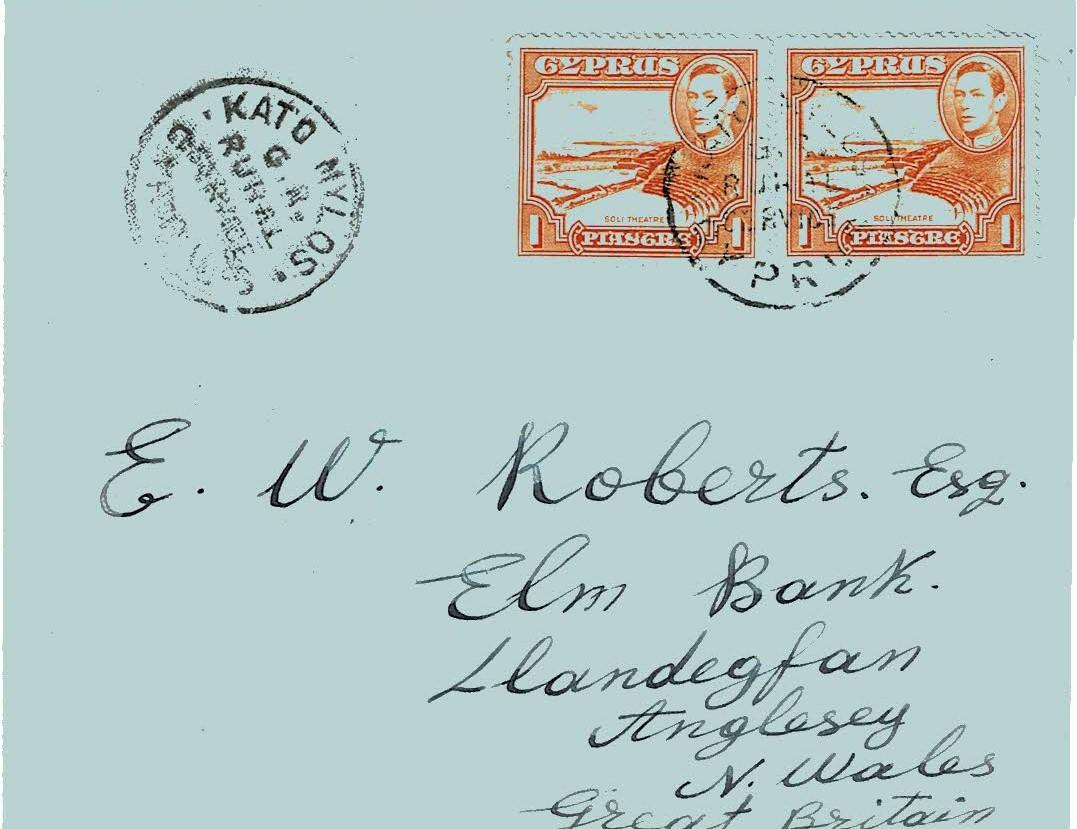 'KATO MYLOS'
G.R.
RURAL
SERVICE
CYPRUS
SOLI THEATRE
1 PIASTRE 1
CYPRUS
SOLI THEATRE
1 PIASTRE 1
E. W. Roberts. Esq.
Elm Bank.
Llandegfan
Anglesey
N. Wales
Great Britain